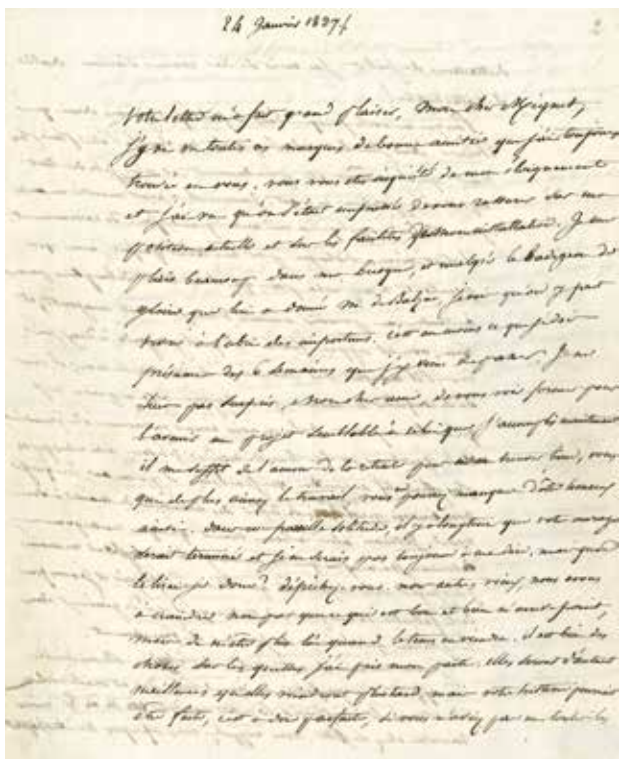 24 Janvier 1837
2
Votre lettre m'a fait grand plaisir, mon cher Mignet,
j'y ai vu toutes ces marques de bonne amitié que j'ai toujours
trouvée en vous. vous vous êtes inquiété de mon éloignement
et j'ai vu qu'on s'était empressé de vous rassurer sur ma
position actuelle et sur les facilités de mon installation. Je me
plais beaucoup dans ma et malgré le badigeon de
gloire que lui a donné M. de Balzac, je vois qu'on y peut
vivre à l'abri des importuns. c'est au moins ce que je dois
présumer des 6 semaines que j'y viens de passer. Je ne
pas , mon cher ami, de vous voir former pour
l'avenir un projet semblable à celui que j'accomplis maintenant
il me suffit de l'amour de la retraite pour m'en trouver bien, vous
qui de plus aimez le travail vous ne pouvez manquer d'être heureux
ainsi. dans une pareille solitude, il y a longtemps que votre ouvrage
serait terminé et je ne serais pas toujours à me dire, mais quand
le lirai-je donc? dépêchez-vous. nous autres vieux, nous avons
à craindre non pas que ce qui est bon et bien n'arrive point,
mais de n'être plus là quand le temps en viendra. il est bien des
choses sur lesquelles j'ai pris mon parti. elles seront d'autant
meilleures qu'elles viendront plus tard, mais votre histoire pourrait
être faite, c'est à dire parfaite, si vous n'aviez pas